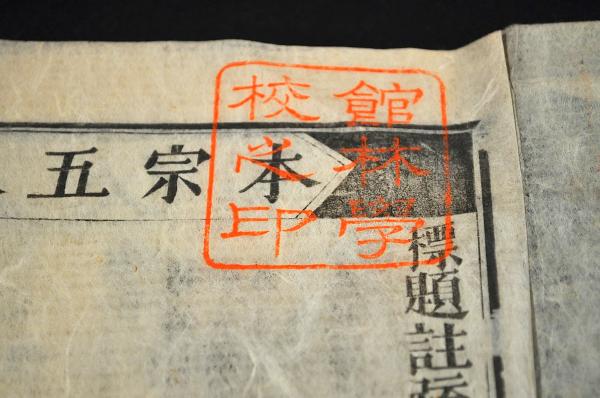 館林學
校之印
本宗五
標題註